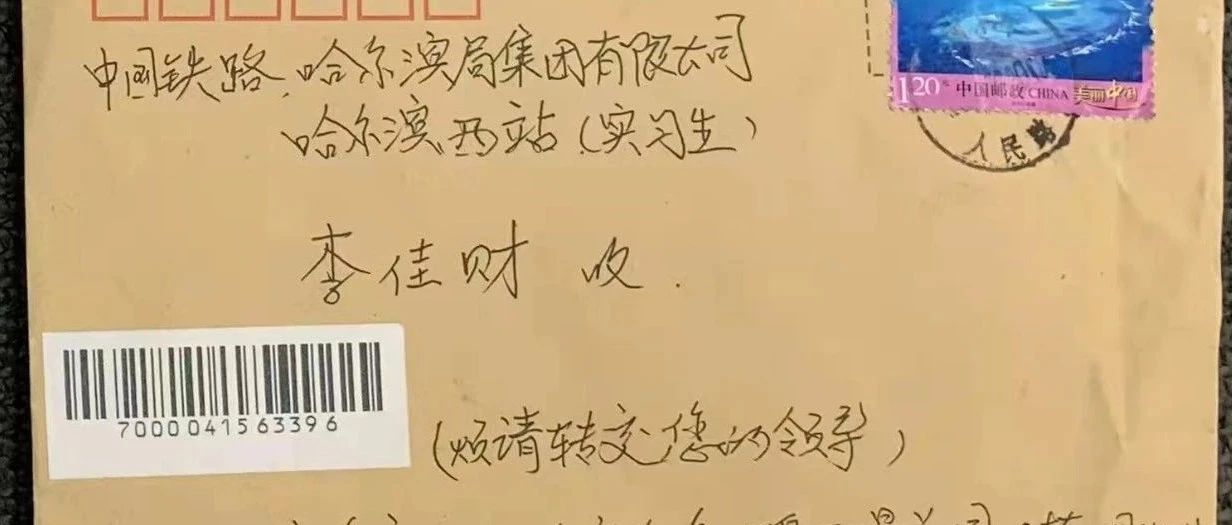 中国铁路.哈尔滨局集团有限公司
哈尔滨西站(实习生)
李佳财 收.
1.20元 中国邮政 CHINA 美丽中国
人民路
7000041563396
(烦请转交您的领导)